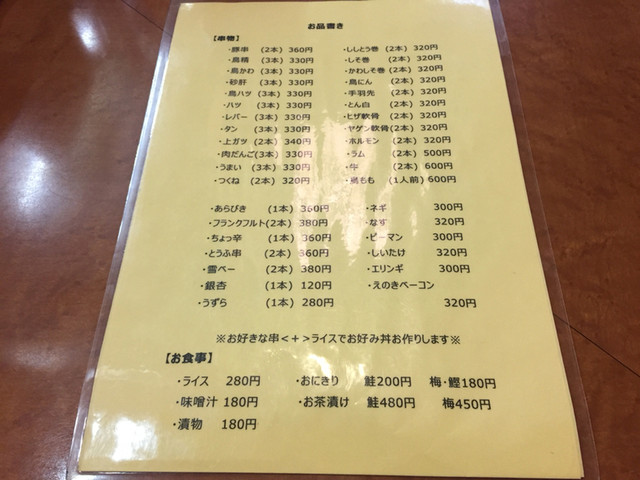 お品書き
【串物】
・豚串 (2本) 360円 ・ししとう巻 (2本) 320円
・鳥精 (3本) 330円 ・しそ巻 (2本) 320円
・鳥かわ (3本) 330円 ・かわしそ巻 (2本) 320円
・砂肝 (3本) 330円 ・鳥にん (2本) 320円
・鳥ハツ (3本) 330円 ・手羽先 (2本) 320円
・ハツ (3本) 330円 ・とん白 (2本) 320円
・レバー (3本) 330円 ・ヒザ軟骨 (2本) 320円
・タン (3本) 330円 ・ヤゲン軟骨 (2本) 320円
・上ガツ (2本) 340円 ・ホルモン (2本) 320円
・肉だんご (3本) 330円 ・ラム (2本) 500円
・うまい (3本) 330円 ・牛 (2本) 600円
・つくね (2本) 320円 ・鳥もも (1人前) 600円
・あらびき (1本) 360円 ・ネギ 300円
・フランクフルト (2本) 380円 ・なす 320円
・ちょっ辛 (1本) 360円 ・ピーマン 300円
・とうふ串 (2本) 360円 ・しいたけ 320円
・雪ベー (2本) 380円 ・エリンギ 300円
・銀杏 (1本) 120円 ・えのきベーコン
・うずら (1本) 280円 320円
※お好きな串<+>ライスでお好み丼お作りします※
【お食事】
・ライス 280円 ・おにきり 鮭200円 梅・鰹180円
・味噌汁 180円 ・お茶漬け 鮭480円 梅450円
・漬物 180円